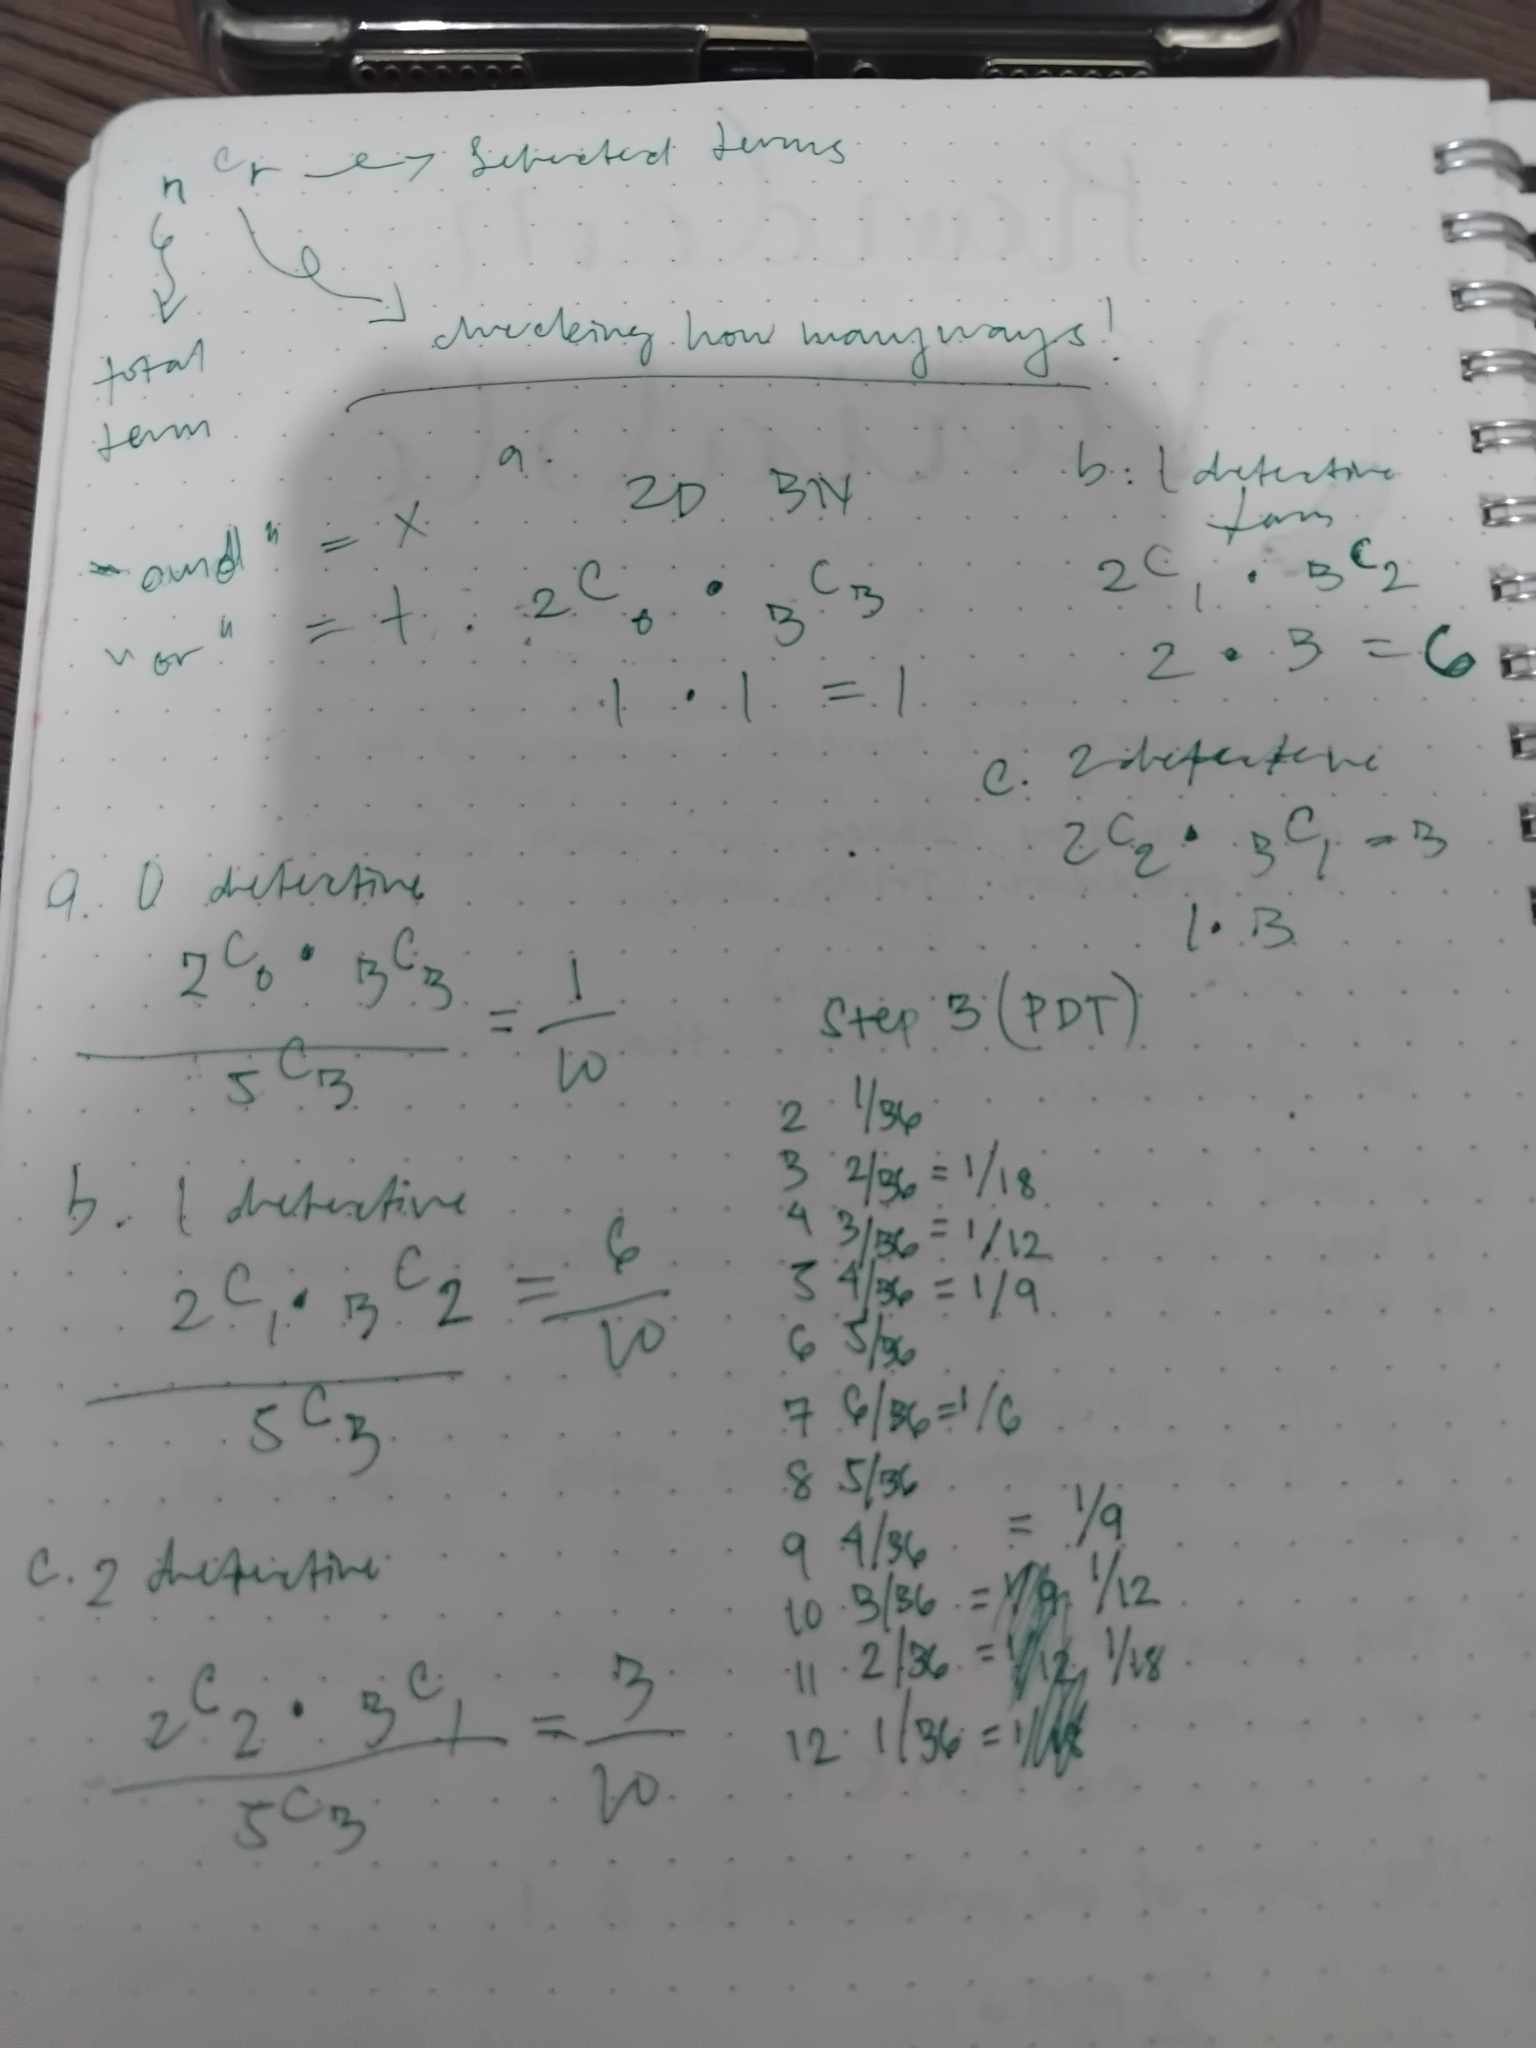 nCr → Selected terms
total
term
checking how many ways!
"and" = x
"or" = +
a. 2D 3N
2C0 · 3C3
1 · 1 = 1
b. 1 defective
2C1 · 3C2
2 · 3 = 6
c. 2 defective
2C2 · 3C1 = 3
1 · 3
a. 0 defective
2C0 · 3C3
5C3
= 1/10
b. 1 defective
2C1 · 3C2
5C3
= 6/10
c. 2 defective
2C2 · 3C1
5C3
= 3/10
Step 3 (PDT)
2 1/36
3 2/36 = 1/18
4 3/36 = 1/12
5 4/36 = 1/9
6 5/36
7 6/36 = 1/6
8 5/36
9 4/36 = 1/9
10 3/36 = 1/12
11 2/36 = 1/18
12 1/36